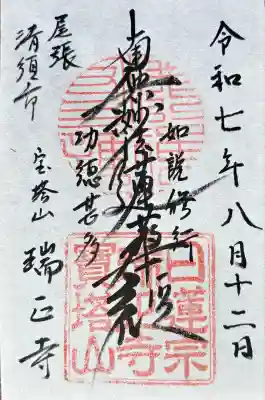 令和七年八月十二日
如説修行
南無妙法蓮華経
功徳甚多
尾張
清須市
宝塔山
瑞正寺
日蓮宗
寶塔山